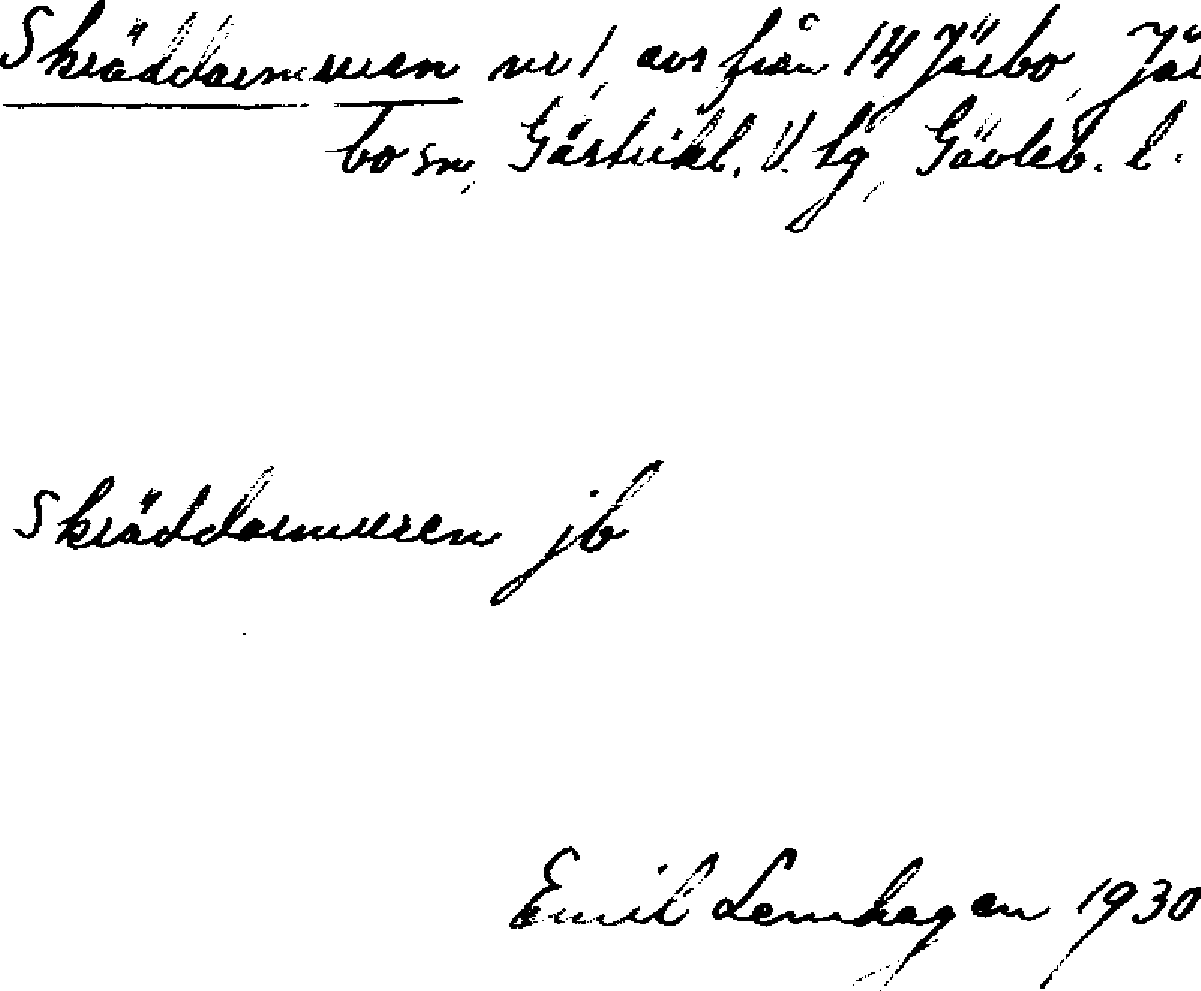 Skräddarmuren nr 1, avs från 14 Järbo, Jär
bo sn, Gästrikl. V. tg, Gävleb. l.
Skräddarmuren jb
Emil Lennhagen 1930